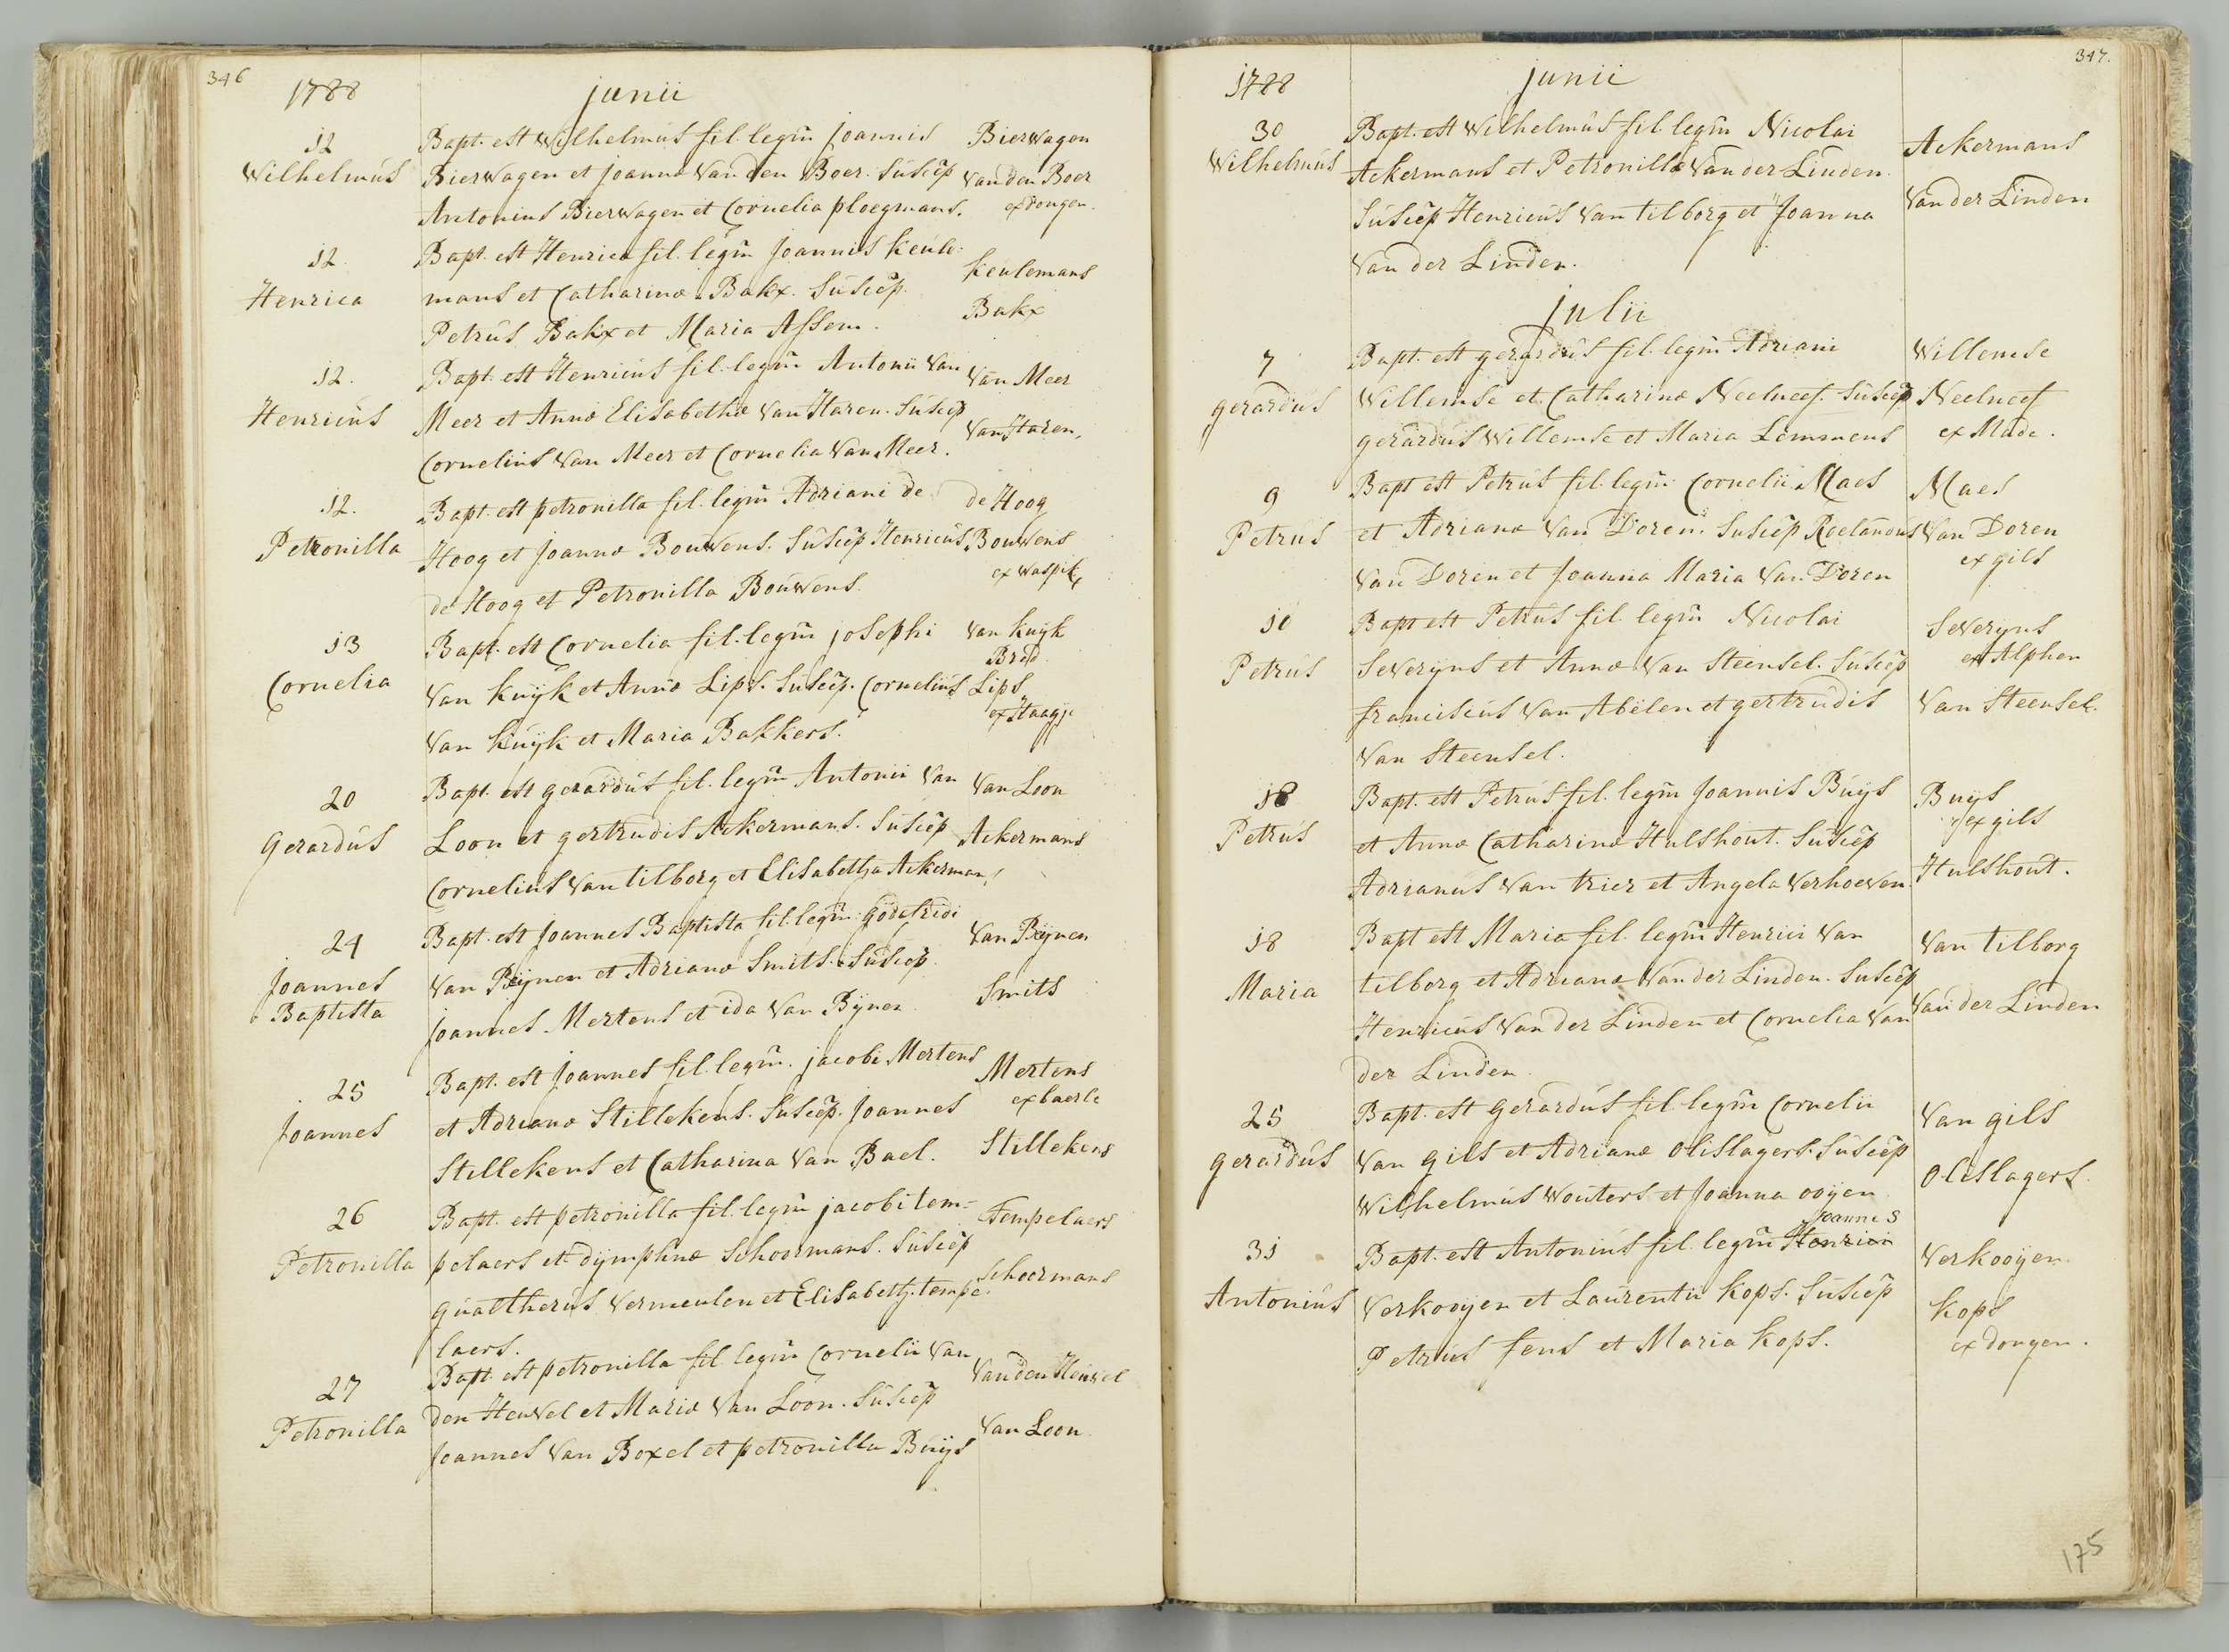 346
1788
junii
12
Wilhelmús
Bapt. est Wilhelmús fil. legm̃ Joannis
Bierwagen et joannæ Van den Boer. Súscep̃
Antonius Bierwagen et Cornelia ploegmans.
Bierwagen
Van den Boer
ex dongen.
12
Henrica
Bapt. est Henrica fil. legm̃ Joannis Keúle:
mans et Catharinæ Bakx. Súscep̃.
Petrús Bakx et Maria Assem.
Keúlemans
Bakx
12.
Henricús
Bapt. est Henricús fil. legm̃ Antonii Van
Meer et Annæ Elisabethæ Van Haren. Súscep̃
Cornelius Van Meer et Cornelia Van Meer.
Van Meer
Van Haren,
12.
Petronilla
Bapt. est petronilla fil. legm̃ Adriani de
Hoog et Joannæ Bouwens. Súscep̃ Henricús
de Hoog et Petronilla Boúwens.
de Hoog
Bouwens
ex waspik
13
Cornelia
Bapt. est Cornelia fil. legm̃ josephi
Van Kuÿk et Annæ Lips. Súscep̃. Corneliús
Van Kúÿk et Maria Bakkers.
Van Kuÿk
Bred.
Lips
ex Haagje
20
Gerardús
Bapt. est gerardús fil. legm̃ Antonii Van
Loon et gertrudis Ackermans. Súscep̃
Cornelius Van tilborg et Elisabetha Ackermans
Van Loon
Ackermans
24
Joannes
Baptista
Bapt. est Joannes Baptista fil. legm̃ Godefridi
Van Rÿnen et Adrianæ Smits. Súscep̃.
joannes Mertens et ida Van Rÿnen
Van Rÿnen
Smits
25
Joannes
Bapt. est Joannes fil. legm̃. jacobi Mertens
et Adrianæ Stillekens. Súscep̃. Joannes
Stillekens et Catharina Van Bael.
Mertens
ex baerle
Stillekens
26
Petronilla
Bapt. est petronilla fil. legm̃ jacobi tem-
pelaers et dÿmphnæ Schoormans. Súscep̃
gúaltherús Vermeulen et Elisabeth tempe-
laers.
Tempelaers
Schoormans
27
Petronilla
Bapt. est petronilla fil. legm̃ Cornelii Van
den Heuvel et Mariæ Van Loon. Súscep̃
Joannes Van Boxel et petronilla Búÿs
Van den Heuvel
Van Loon
347.
1788
junii
30
Wilhelmús
Bapt. est Wilhelmús fil. legm̃ Nicolai
Ackermans et Petronillæ Van der Linden.
Súscep̃ Henricús Van tilborg et Joanna
Van der Linden.
Ackermans
Van der Linden
julii
7
gerardús
Bapt. est gerardús fil. legm̃ Adriani
Willemse et Catharinæ Neelucef. Súscep̃
gerardús Willemse et Maria Lemmens
Willemse
Neelucef
ex Made.
9
Petrús
Bapt est Petrús fil. legm̃ Cornelii Maes
et Adrianæ Van Doren. Súscep̃ Roelandus
Van Doren et Joanna Maria Van Doren
Maes
Van Doren
ex gils
10
Petrús
Bapt est Petrus fil. legm̃ Nicolai
Severÿns et Annæ Van Steensel. Súscep̃
franciscús Van Abelen et gertrúdis
Van Steensel.
Severÿns
ex Alphen
Van Steensel.
18
Petrús
Bapt. est Petrús fil. legm̃ Joannis Búÿs
et Annæ Catharinæ Hulshout. Súscep̃
Adrianús Van trier et Angela Verhoeven.
Buÿs
ex gils
Hulshout.
18
Maria
Bapt est Maria fil. legm̃ Henrici Van
tilborg et Adrianæ Van der Linden. Súscep̃
Henricús Van der Linden et Cornelia Van
der Linden.
Van tilborg
Van der Linden
25
gerardús
Bapt. est Gerardús fil. legm̃ Cornelii
Van gils et Adrianæ Olislagers. Súscep̃
Wilhelmús Wouters et Joanna ooÿen
Van gils
Olislagers.
31
Antoniús
Joannes
Bapt. est Antoniús fil. legm̃ Henrici
Verkooÿen et Laurentii Kops. Súscep̃
Petrús fens et Maria Kops.
Verkooÿen.
Kops
ex dongen.
175